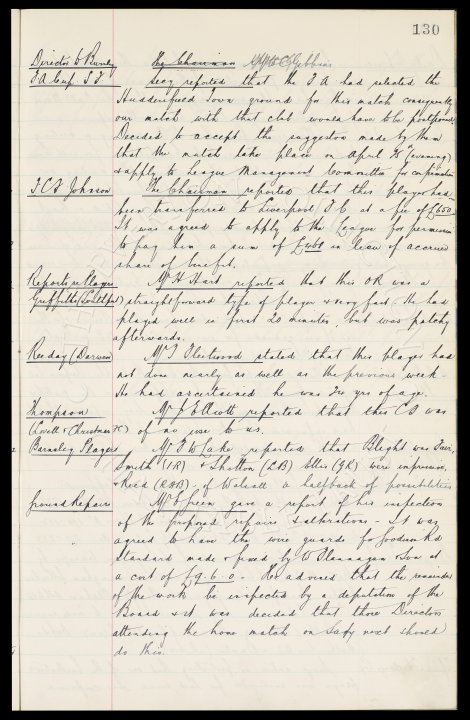 130
Director to Burnley The Chairman
F A Cup S F Secy reported that the F A had selected the
Huddersfield Town ground for this match consequently
our match with that club would have to be postponed.
Decided to accept the suggestion made by them
that the match take place on April (evening)
& apply to League Management Committee for confirmation
T C F Johnson The Chairman reported that this player had
been transferred to Liverpool F C at a fee of
It was agreed to apply to the League for permission
to pay him a sum of in lieu of accrued
share of benefit.
Reports re Players Mr H Hart reported that this OR was a
Griffiths straightforward type of player & very fast. He had
played well in first 20 minutes, but was patchy
afterwards.
Reeday (Darwen) Mr J Fleetwood stated that this player had
not done nearly as well as the previous week -
He had ascertained he was yrs of age.
Thompson reported that this CF was
(Lovells Christmas FC) of no use to us.
Barnsley Players Mr F W Lake reported that Blight was fair,
Smith (IR) & Shotton (LB) Ellis (GK) were impressive,
& Reed (RHB) of Walsall a halfback of possibilities
Ground Repairs Mr E Green gave a report of his inspection
of the proposed repairs & alterations - It was
agreed to have the wire guards for Goodison Rd
Standard made & fixed by W Flannagan & Son at
a cost of £9-6-0. He advised that the remainder
of the work be inspected by a deputation of the
Board & it was decided that those Directors
attending the home match on Satdy next should
do this.